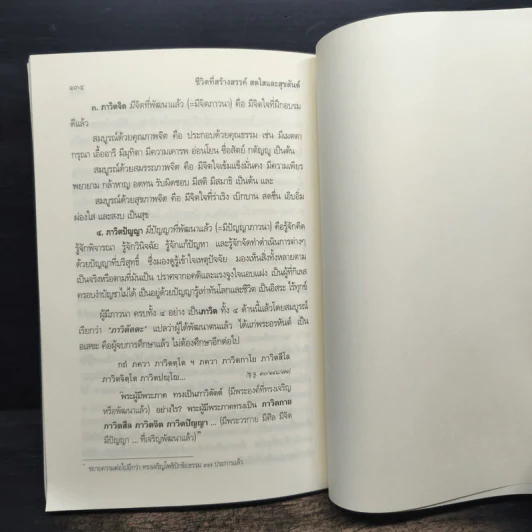 ๑๓๔ ชีวิตที่สร้างสรรค์ สดใสและสุขสันต์
๓. ภาวิตจิต มีจิตที่พัฒนาแล้ว (=มีจิตภาวนา) คือ มีจิตใจที่ฝึกอบรม
ดีแล้ว
สมบูรณ์ด้วยคุณภาพจิต คือ ประกอบด้วยคุณธรรม เช่น มีเมตตา
กรุณา เอื้ออารี มีมุทิตา มีความเคารพ อ่อนโยน ซื่อสัตย์ กตัญญู เป็นต้น
สมบูรณ์ด้วยสมรรถภาพจิต คือ มีจิตใจเข้มแข็งมั่นคง มีความเพียร
พยายาม กล้าหาญ อดทน รับผิดชอบ มีสติ มีสมาธิ เป็นต้น และ
สมบูรณ์ด้วยสุขภาพจิต คือ มีจิตใจที่ร่าเริง เบิกบาน สดชื่น เอิบอิ่ม
ผ่องใส และสงบ เป็นสุข
๔. ภาวิตปัญญา มีปัญญาที่พัฒนาแล้ว (=มีปัญญาภาวนา) คือรู้จักคิด
รู้จักพิจารณา รู้จักวินิจฉัย รู้จักแก้ปัญหา และรู้จักจัดทำดำเนินการต่างๆ
ด้วยปัญญาที่บริสุทธิ์ ซึ่งมองดูรู้เข้าใจเหตุปัจจัย มองเห็นสิ่งทั้งหลายตาม
เป็นจริงหรือตามที่มันเป็น ปราศจากอคติและแรงจูงใจแอบแฝง เป็นผู้ที่กิเลส
ครอบงำบัญชาไม่ได้ เป็นอยู่ด้วยปัญญารู้เท่าทันโลกและชีวิต เป็นอิสระ ไร้ทุกข์
ผู้มีภาวนา ครบทั้ง ๔ อย่าง เป็นภาวิต ทั้ง ๔ ด้านนี้แล้วโดยสมบูรณ์
เรียกว่า "ภาวิตัตตะ" แปลว่าผู้ได้พัฒนาตนแล้ว ได้แก่พระอรหันต์ เป็น
อเสขะ คือผู้จบการศึกษาแล้ว ไม่ต้องศึกษาอีกต่อไป
กถํ ภควา ภาวิตตฺโต ฯ ภควา ภาวิตกาโย ภาวิตสีโล
ภาวิตจิตฺโต ภาวิตปญฺโญ...
"พระผู้มีพระภาค ทรงเป็นภาวิตัตต์ (มีพระองค์ที่ทรงเจริญ
หรือพัฒนาแล้ว) อย่างไร? พระผู้มีพระภาคทรงเป็น ภาวิตกาย
ภาวิตศีล ภาวิตจิต ภาวิตปัญญา ... (มีพระวรกาย มีศีล มีจิต
มีปัญญา ... ที่เจริญพัฒนาแล้ว)"
* ขยายความต่อไปอีกว่า ทรงเจริญโพธิปักขิยธรรม ๓๗ ประการแล้ว